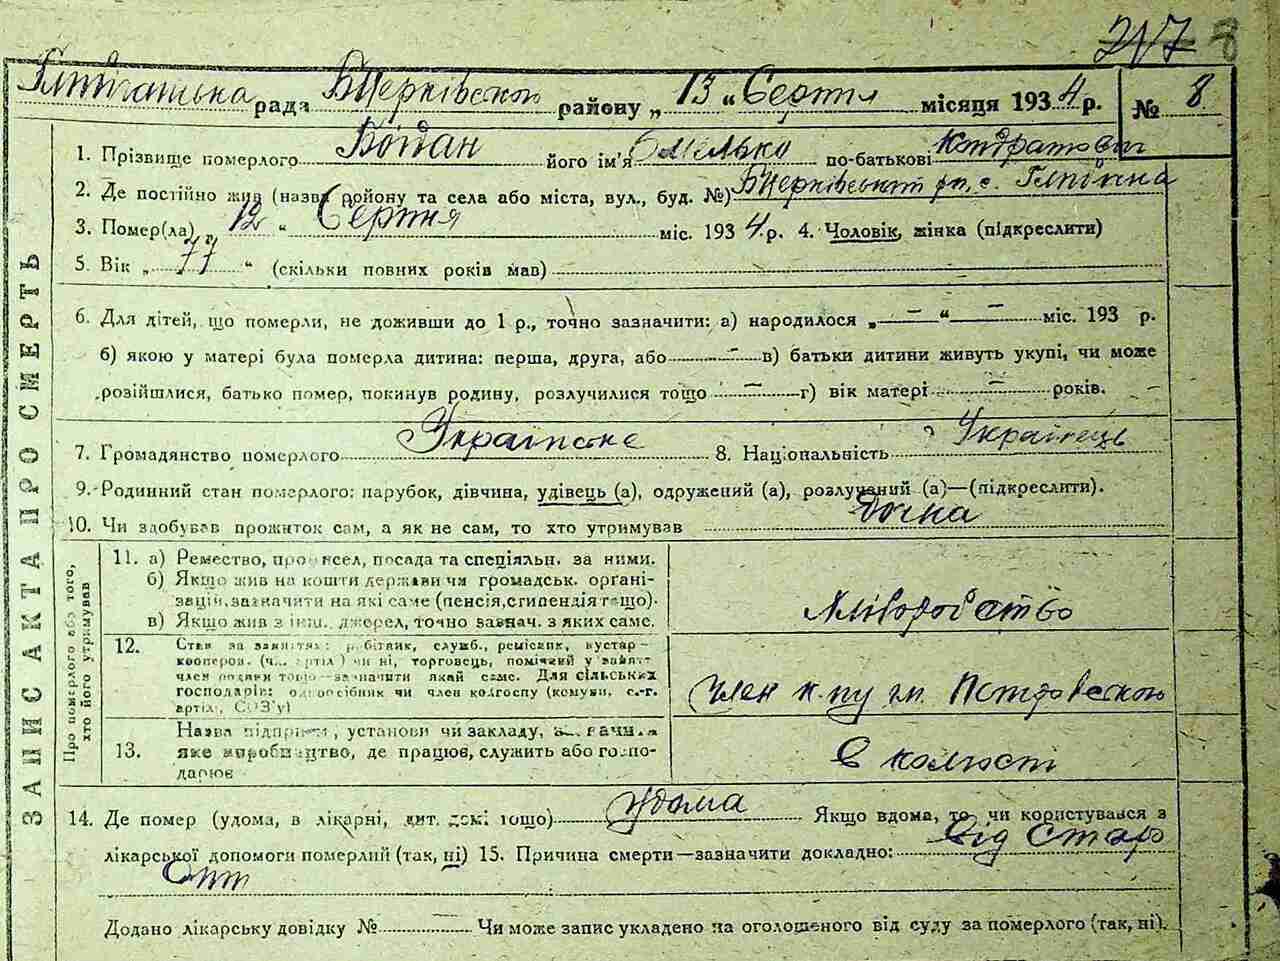 217 8
рада Б Церківського району „ 13 “ Серпня місяця 1934 р. № 8
1. Прізвище померлого Богдан його ім'я Омелько по-батькові Кондратович
2. Де постійно жив (назва району та села або міста, вул., буд. №) Б Церківський рн. с.
3. Помер(ла) „ 12 “ Серпня міс. 1934 р. 4. Чоловік, жінка (підкреслити)
5. Вік „ 77 “ (скільки повних років мав)
6. Для дітей, що померли, не доживши до 1 р., точно зазначити: а) народилося „ — “ — міс. 193 р.
б) якою у матері була померла дитина: перша, друга, або — в) батьки дитини живуть укупі, чи може
розійшлися, батько помер, покинув родину, розлучилися тощо — г) вік матері — років.
7. Громадянство померлого Українське 8. Національність Українець
9. Родинний стан померлого: парубок, дівчина, удівець (а), одружений (а), розлучений (а)—(підкреслити).
10. Чи здобував прожиток сам, а як не сам, то хто утримував дочка
ЗАПИС АКТА ПРО СМЕРТЬ
Про померлого або того,
хто його утримував
11. а) Ремество, промисел, посада та спеціяльн. за ними.
б) Якщо жив на кошти держави чи громадськ. органі-
зацій, зазначити на які саме (пенсія, стипендія тощо).
в) Якщо жив з інш. джерел, точно зазнач. з яких саме.
Хліборобство
12. Стан за заняттям: робітник, служб., ремісник, кустар-
кооперов. (ч... артіл.) чи ні, торговець, помічний у занятт
член родини тощо—зазначити який саме. Для сільських
господарів: одноосібник чи член колгоспу (комуни, с.-г.
артілі, СОЗ'у)
Член к-пу ім. Петровського
13. Назва підприєм., установи чи закладу, зазначити
яке виробництво, де працює, служить або госпо-
дарює
В колгоспі
14. Де помер (удома, в лікарні, дит. домі тощо) удома Якщо вдома, то чи користувався з
лікарської допомоги померлий (так, ні) 15. Причина смерти—зазначити докладно: Від Старо
сти
Додано лікарську довідку № Чи може запис укладено на оголошеного від суду за померлого (так, ні).